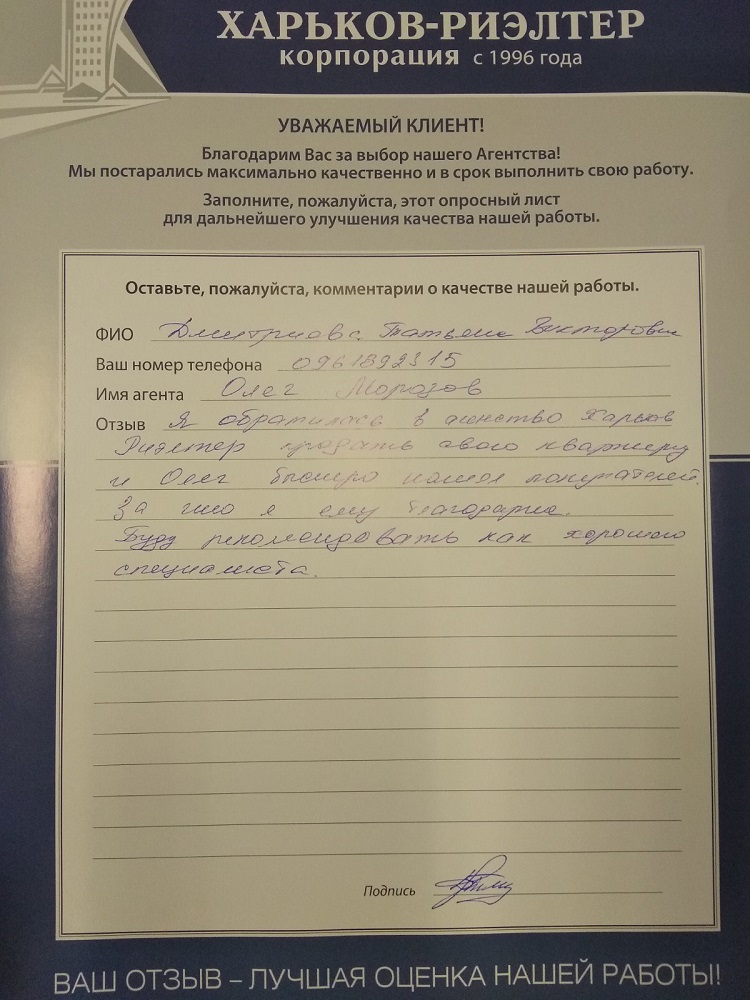 ХАРЬКОВ-РИЭЛТЕР
корпорация с 1996 года
УВАЖАЕМЫЙ КЛИЕНТ!
Благодарим Вас за выбор нашего Агентства!
Мы постарались максимально качественно и в срок выполнить свою работу.
Заполните, пожалуйста, этот опросный лист
для дальнейшего улучшения качества нашей работы.
Оставьте, пожалуйста, комментарии о качестве нашей работы.
ФИО Дмитриова Татьяна Викторовна
Ваш номер телефона 0961892315
Имя агента Олег Морозов
Отзыв Я обратилась в агенство Харьков
Риэлтер продать свою квартиру
и Олег быстро нашел покупателей.
За что я ему благодарна.
Буду рекомендовать как хорошего
специалиста.
Подпись
ВАШ ОТЗЫВ – ЛУЧШАЯ ОЦЕНКА НАШЕЙ РАБОТЫ!